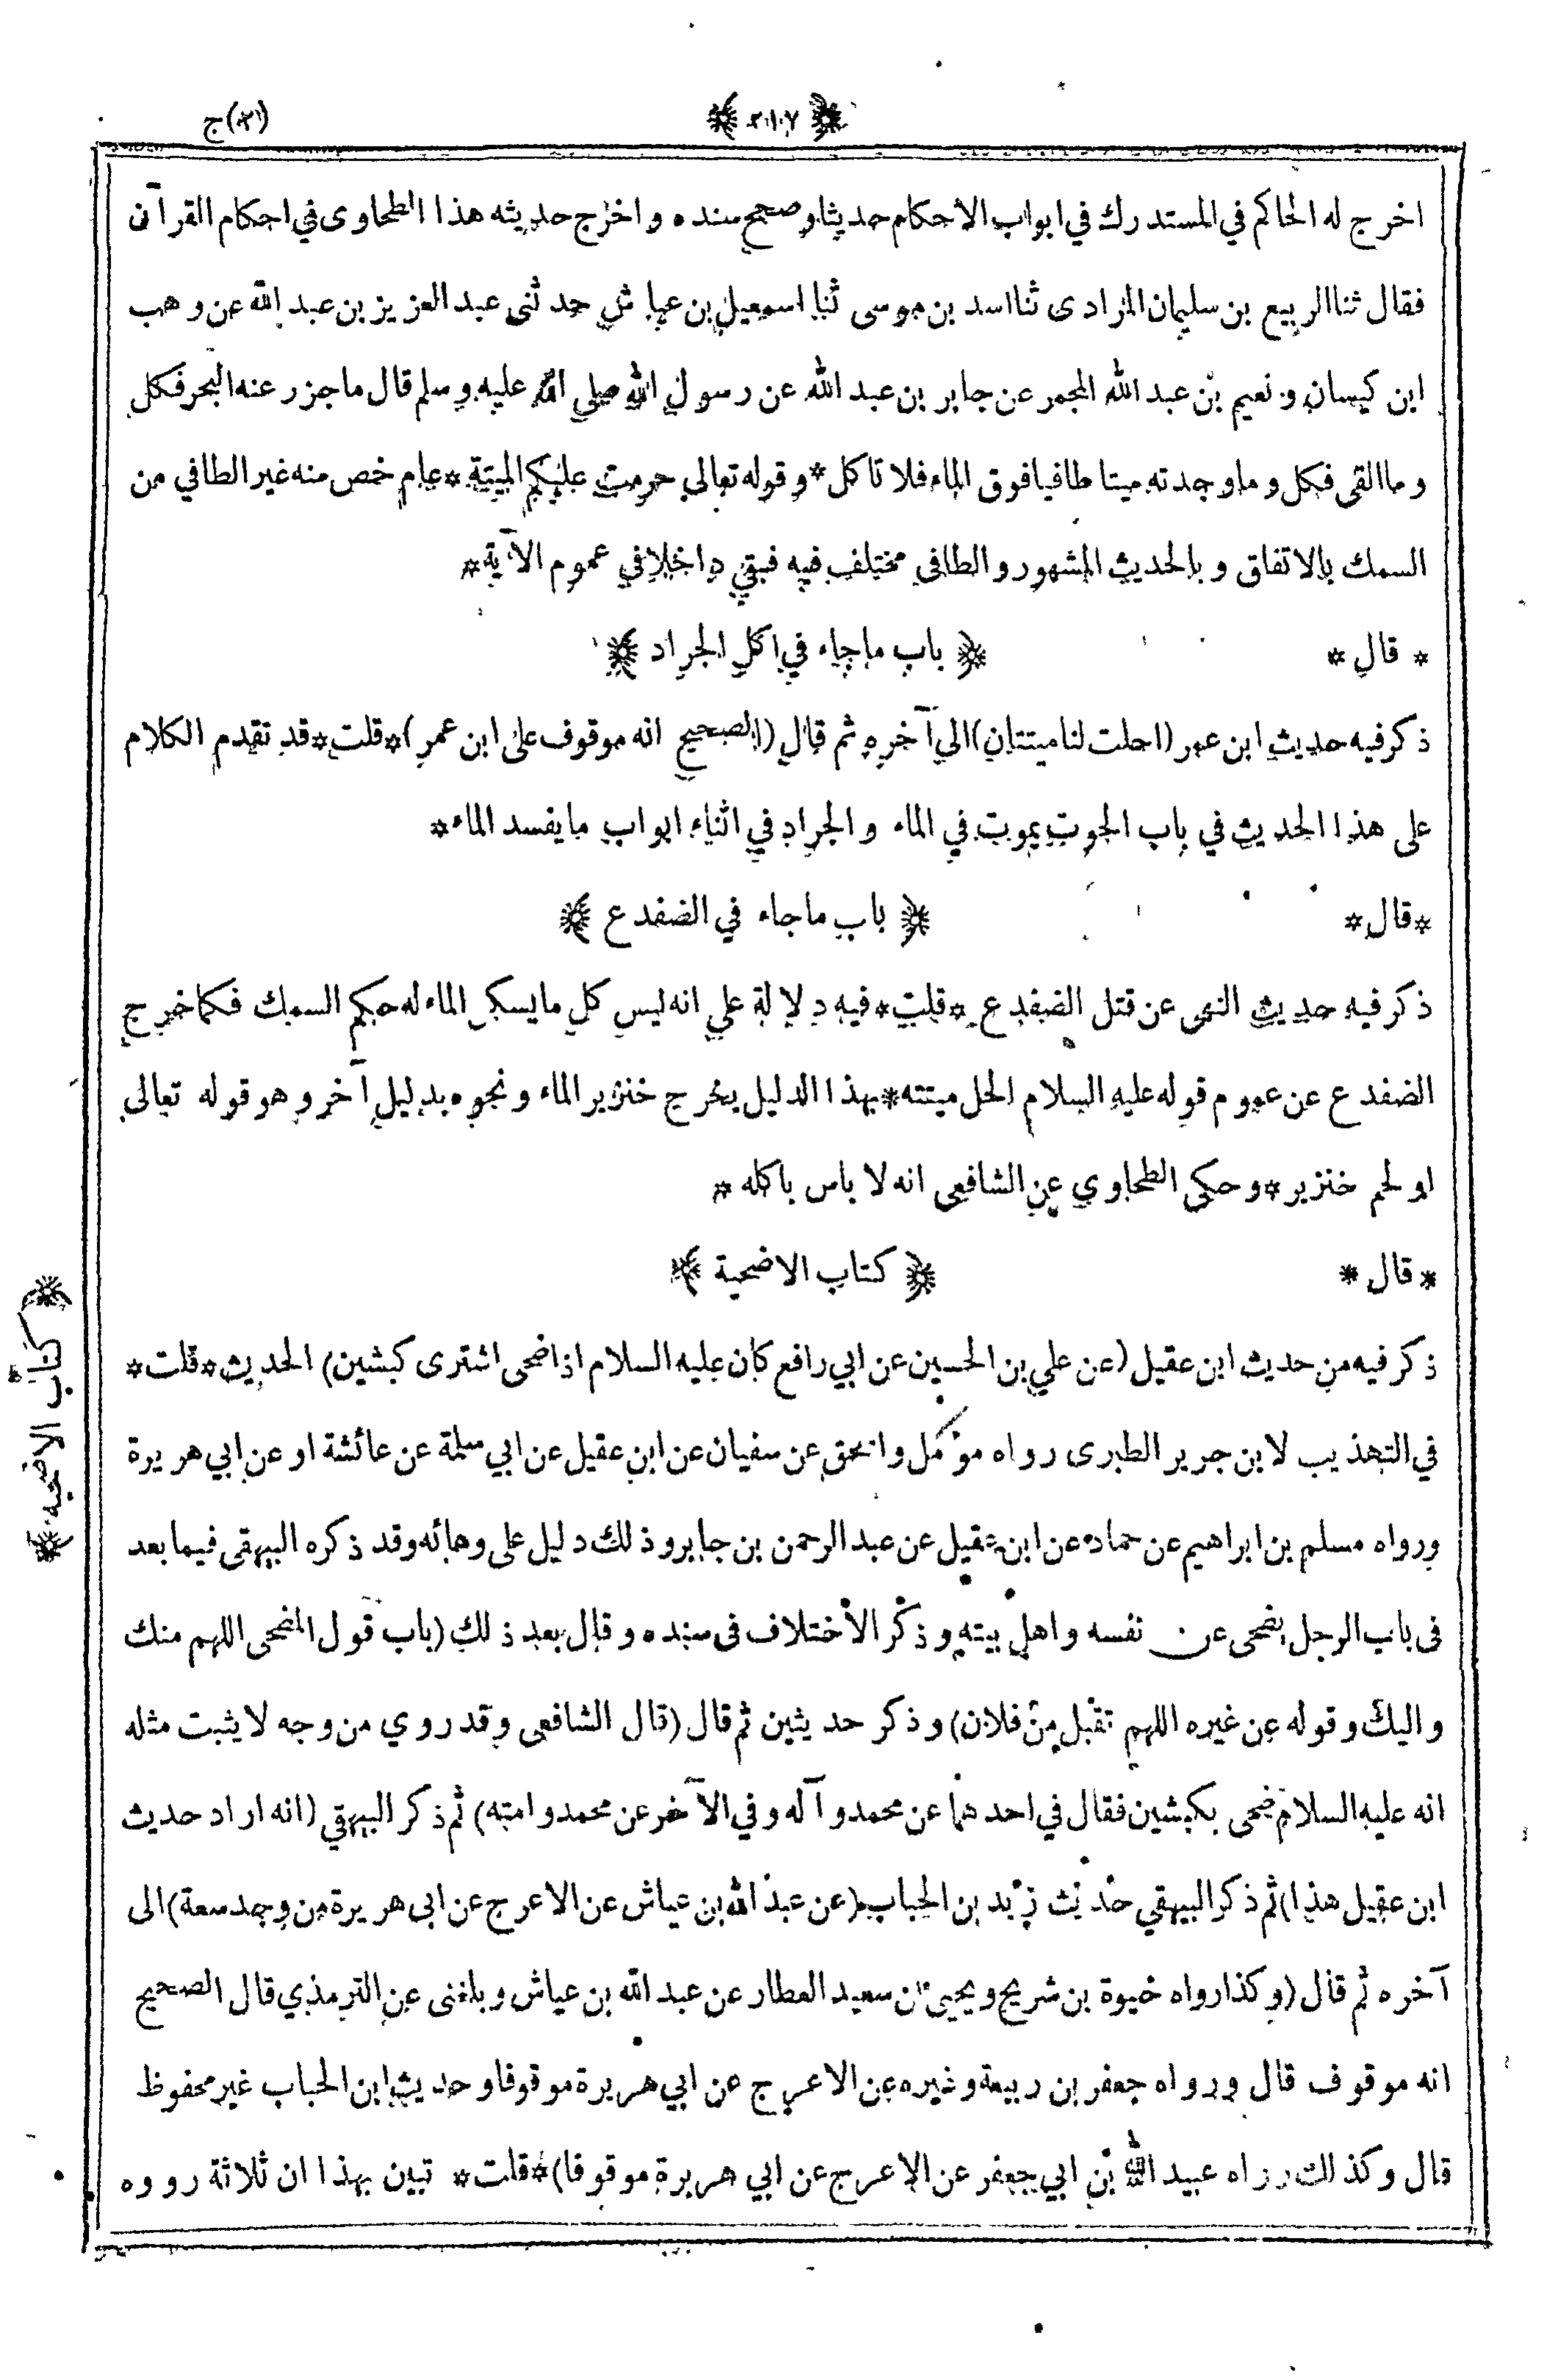 ﴿ ٢١٧ ﴾ ج (٢)
اخرج له الحاكم في المستدرك في ابواب الاحكام حديثا وصحح سنده واخرج حديثه هذا الطحاوى في احكام القرآن
فقال ثنا الربيع بن سليمان المرادى ثنا اسد بن موسى ثنا اسمعيل بن عياش حدثنى عبد العزيز بن عبد الله عن وهب
ابن كيسان ونعيم بن عبد الله المجمر عن جابر بن عبد الله عن رسول الله صلى الله عليه وسلم قال ما جزر عنه البحر فكل
وما القى فكل وما وجدته ميتا طافيا فوق الماء فلا تاكل * وقوله تعالى حرمت عليكم الميتة * عام خص منه غير الطافي من
السمك بالاتفاق وبالحديث المشهور والطافى مختلف فيه فبقى داخلا في عموم الآية *
* قال * ﴿ باب ما جاء في اكل الجراد ﴾
ذكر فيه حديث ابن عمر (احلت لنا ميتتان) الى آخره ثم قال (الصحيح انه موقوف على ابن عمر) * قلت * قد تقدم الكلام
على هذا الحديث في باب الحوت يموت في الماء والجراد في اثناء ابواب ما يفسد الماء *
* قال * ﴿ باب ما جاء في الضفدع ﴾
ذكر فيه حديث النهى عن قتل الضفدع * قلت * فيه دلالة على انه ليس كل ما يسكن الماء له حكم السمك فكما خرج
الضفدع عن عموم قوله عليه السلام الحل ميتته * بهذا الدليل يخرج خنزير الماء ونحوه بدليل آخر وهو قوله تعالى
او لحم خنزير * وحكى الطحاوي عن الشافعى انه لا باس باكله *
* قال * ﴿ كتاب الاضحية ﴾
ذكر فيه من حديث ابن عقيل (عن علي بن الحسين عن ابي رافع كان عليه السلام اذا ضحى اشترى كبشين) الحديث * قلت *
في التهذيب لابن جرير الطبرى رواه مؤمل واسحق عن سفيان عن ابن عقيل عن ابي سلمة عن عائشة او عن ابي هريرة
ورواه مسلم بن ابراهيم عن حماد عن ابن عقيل عن عبد الرحمن بن جابر وذلك دليل على وهائه وقد ذكره البيهقى فيما بعد
فى باب الرجل يضحى عن نفسه واهل بيته وذكر الاختلاف فى سنده وقال بعد ذلك (باب قول المضحى اللهم منك
واليك وقوله عن غيره اللهم تقبل من فلان) وذكر حديثين ثم قال (قال الشافعى وقد روي من وجه لا يثبت مثله
انه عليه السلام ضحى بكبشين فقال في احدهما عن محمد وآله وفي الآخر عن محمد وامته) ثم ذكر البيهقي (انه اراد حديث
ابن عقيل هذا) ثم ذكر البيهقي حديث زيد بن الحباب (عن عبد الله بن عياش عن الاعرج عن ابى هريرة من وجد سعة) الى
آخره ثم قال (وكذا رواه حيوة بن شريح ويحيى بن سعيد العطار عن عبد الله بن عياش وبلغنى عن الترمذي قال الصحيح
انه موقوف قال ورواه جعفر بن ربيعة وغيره عن الاعرج عن ابي هريرة موقوفا وحديث ابن الحباب غير محفوظ
قال وكذلك رواه عبيد الله بن ابي جعفر عن الاعرج عن ابي هريرة موقوفا) * قلت * تبين بهذا ان ثلاثة رووه
﴿ كتاب الاضحيه ﴾